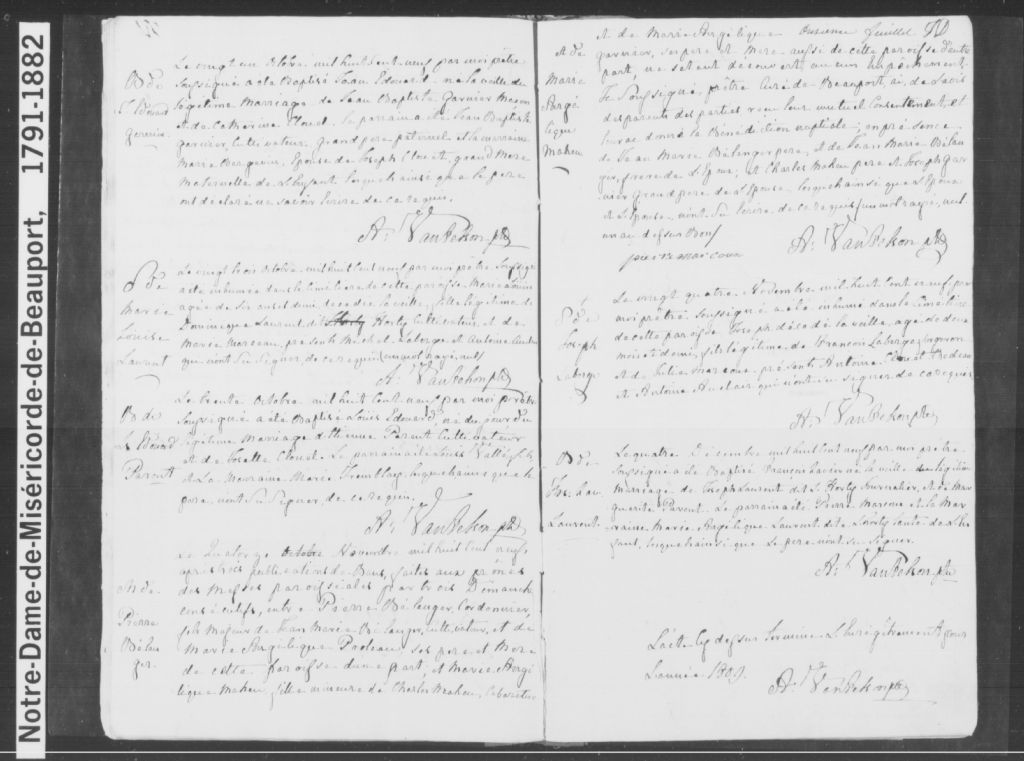 Notre-Dame-de-Miséricorde-de-Beauport, 1791-1882
B de
Ls Edouard
Garnier
Le vingt un Octobre mil huit cent neuf par moi prêtre
soussigné a été Baptisé Jean Edouard né la veille du
légitime Mariage de Jean Baptiste Garnier Maçon
et de Catherine Clouet. le parrain a été Jean Baptiste
garnier, Cultivateur, Grand pere paternel et la marraine
Marie Bergevin, Epouse de Joseph Clouet, grand Mere
Maternelle de l'Enfant lesquels ainsi que le pere
ont déclaré ne savoir écrire de ce requis.
At Vanfelson ptre
S de
Marie
Louise
Laurent
Le vingt trois Octobre mil huit cent neuf par moi prêtre soussigné
a été inhumée dans le Cimetiere de cette paroisse, Marie Louise
agée de six ans et demi décédée la veille, fille légitime de
Dominique Laurent dit Horty Cultivateur, et de
Marie Marceau, présents Michel Laberge et Antoine
qui n'ont su signer de ce requis (un mot rayé, nul)
At Vanfelson ptre
B de
Ls Edouard
Parent
Le trente Octobre mil huit cent neuf par moi prêtre
soussigné a été Baptisé Louis Edouard, né du jour du
légitime Mariage d'Etienne Parent Cultivateur
et de Josette Clouet. Le parrain a été Louis Vallée, fils
et La Marraine Marie Tremblay, lesquels ainsi que le
pere n'ont su signer de ce requis.
At Vanfelson ptre
M de
Pierre
Bélan
ger
Le Quatorze octobre Novembre mil huit cent neuf,
après trois publications de Bans, faites aux prônes
des Messes paroissiales par trois Dimanches
consécutifs, entre Pierre Bélanger, Cordonnier,
fils Majeur de Jean Marie Bélanger, Cultivateur, et de
Marie Angélique Parleau, ses pere et Mere
de cette paroisse d'une part; et Marie Angé
lique Maheu, fille mineure de Charles Maheu, Cabaretier
et de Marie Angélique Onsieme feuillet
et de
Marie
Angé
lique
Maheu
garnier, ses pere et Mere aussi de cette paroisse d'autre
part, ne s'étant découvert aucun empêchement,
Je soussigné, prêtre Curé de Beauport, ai, de l'avis
des parens des parties reçu leur mutuel Consentement, et
leur ai donné la Bénédiction nuptiale; en présence
de Jean Marie Bélanger pere, et de Jean Marie Bélan
ger, frere de l'Epoux, et Charles Maheu pere et Joseph Gar
nier Grand pere de l'Epouse, lesquels ainsi que l'Epoux
et l'Epouse, n'ont su écrire, de ce requis (un mot rayé, nul
un au dessus Bon)
At Vanfelson ptre
S de
Joseph
Laberge
Le vingt quatre Novembre mil huit cent neuf par
moi prêtre soussigné a été inhumé dans le Cimetiere
de cette paroisse Joseph décédé la veille, agé de deux
mois et demi, fils légitime de François Laberge forgeron
et de Julie Marcoux, présents Antoine Clouet Bedeau
et Antoine Auclair qui n'ont su signer de ce requis
At Vanfelson ptre
B de
Frs. Xav
Laurent
Le quatre Décembre mil huit cent neuf par moi prêtre
soussigné a été Baptisé François Xavier né la veille du légitime
Mariage de Joseph Laurent dit L'Horty Journalier, et de Mar
guerite Parent. Le parrain a été Pierre Marcoux et la Mar
raine Marie Angélique Laurent dite L'horty tante de l'En
fant, lesquels ainsi que le pere n'ont su signer.
At Vanfelson ptre
L'acte ci dessus termine le Régistre pour
l'année 1809.
At Vanfelson ptre